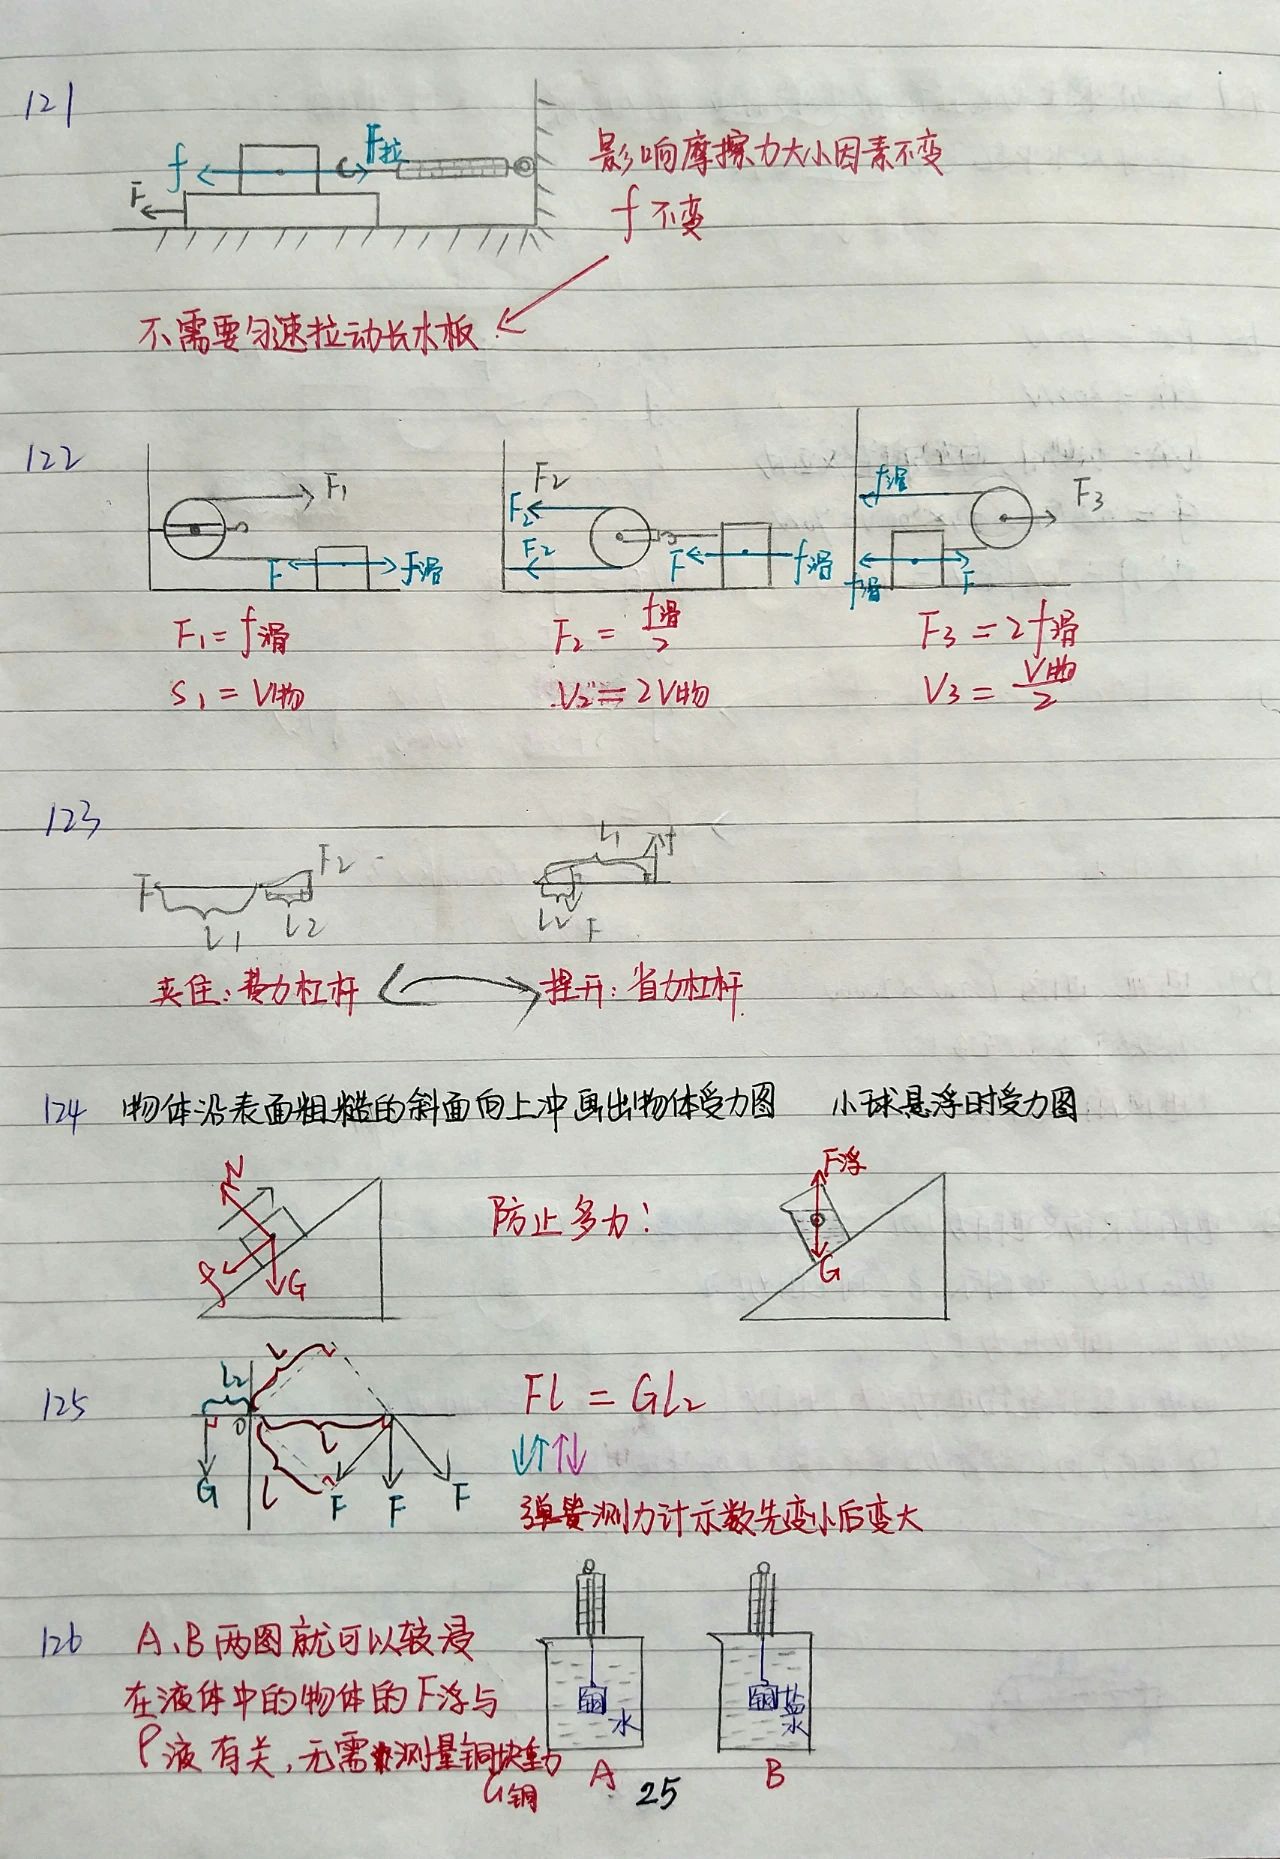 121
f F拉
F
影响摩擦力大小因素不变
f 不变
不需要匀速拉动长木板
122
F₁
F f滑
F₂
F₂
F₂
F f滑
f滑 F₃
f滑 F
F₁=f滑
F₂=f滑/2
F₃=2f滑
S₁=V物
V₂=2V物
V₃=V物/2
123
F F₂
L₁ L₂
L₁ f
L₂ F
夹住:费力杠杆
提开:省力杠杆
124 物体沿表面粗糙的斜面向上冲画出物体受力图 小球悬浮时受力图
N
f G
防止多力!
F浮
G
125
L₂ L
O L
G L F F F
FL=GL₂
↓↑↑↓
弹簧测力计示数先变小后变大
126 A、B两图就可以较浸
在液体中的物体的F浮与
ρ液有关,无需测量铜块重力
G铜
铜 水
A
铜 盐水
B
25